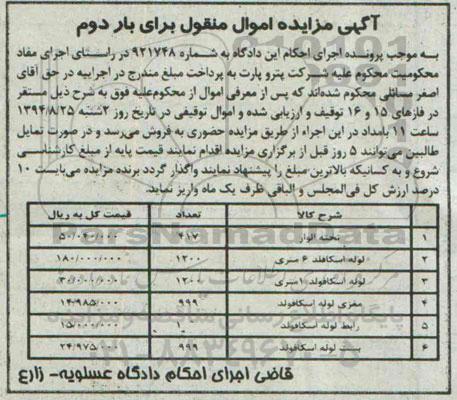 آگهی مزایده اموال منقول برای بار دوم
به موجب پرونده اجرای احکام این دادگاه به شماره ۹۲۱۷۴۸ در راستای اجرای مفاد
محکومیت محکوم علیه شرکت پترو پارت به پرداخت مبلغ مندرج در اجراییه در حق آقای
اصغر مسائلی محکوم شده‌اند که پس از معرفی اموال از محکوم‌علیه فوق به شرح ذیل مستقر
در فازهای ۱۵ و ۱۶ توقیف و ارزیابی شده و اموال توقیفی در تاریخ روز ۲شنبه ۱۳۹۴/۸/۲۵
ساعت ۱۱ بامداد در این اجراء از طریق مزایده حضوری به فروش می‌رسد و در صورت تمایل
طالبین می‌توانند ۵ روز قبل از برگزاری مزایده اقدام نمایند قیمت پایه از مبلغ کارشناسی
شروع و به کسانیکه بالاترین مبلغ را پیشنهاد نمایند واگذار گردد برنده مزایده می‌بایست ۱۰
درصد ارزش کل فی‌المجلس و الباقی ظرف یک ماه واریز نماید.
شرح کالا تعداد قیمت کل به ریال
۱ تخته الوار ۴۱۷ ۵۰/۰۴۰/۰۰۰
۲ لوله اسکافلد ۶ متری ۱۲۰۰ ۱۸۰/۰۰۰/۰۰۰
۳ لوله اسکافولد ۱متری ۱۲۰۰ ۳۰/۰۰۰/۰۰۰
۴ مغزی لوله اسکافولد ۹۹۹ ۱۴/۹۸۵/۰۰۰
۵ رابط لوله اسکافولد ۱۵/۰۰۰/۰۰۰
۶ بست لوله اسکافولد ۹۹۹ ۲۴/۹۷۵/۰۰۰
قاضی اجرای احکام دادگاه عسلویه- زارع
ParsNamadData